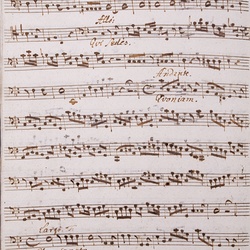 Allo
Qui sedes.
Andante.
Quoniam.
Largo